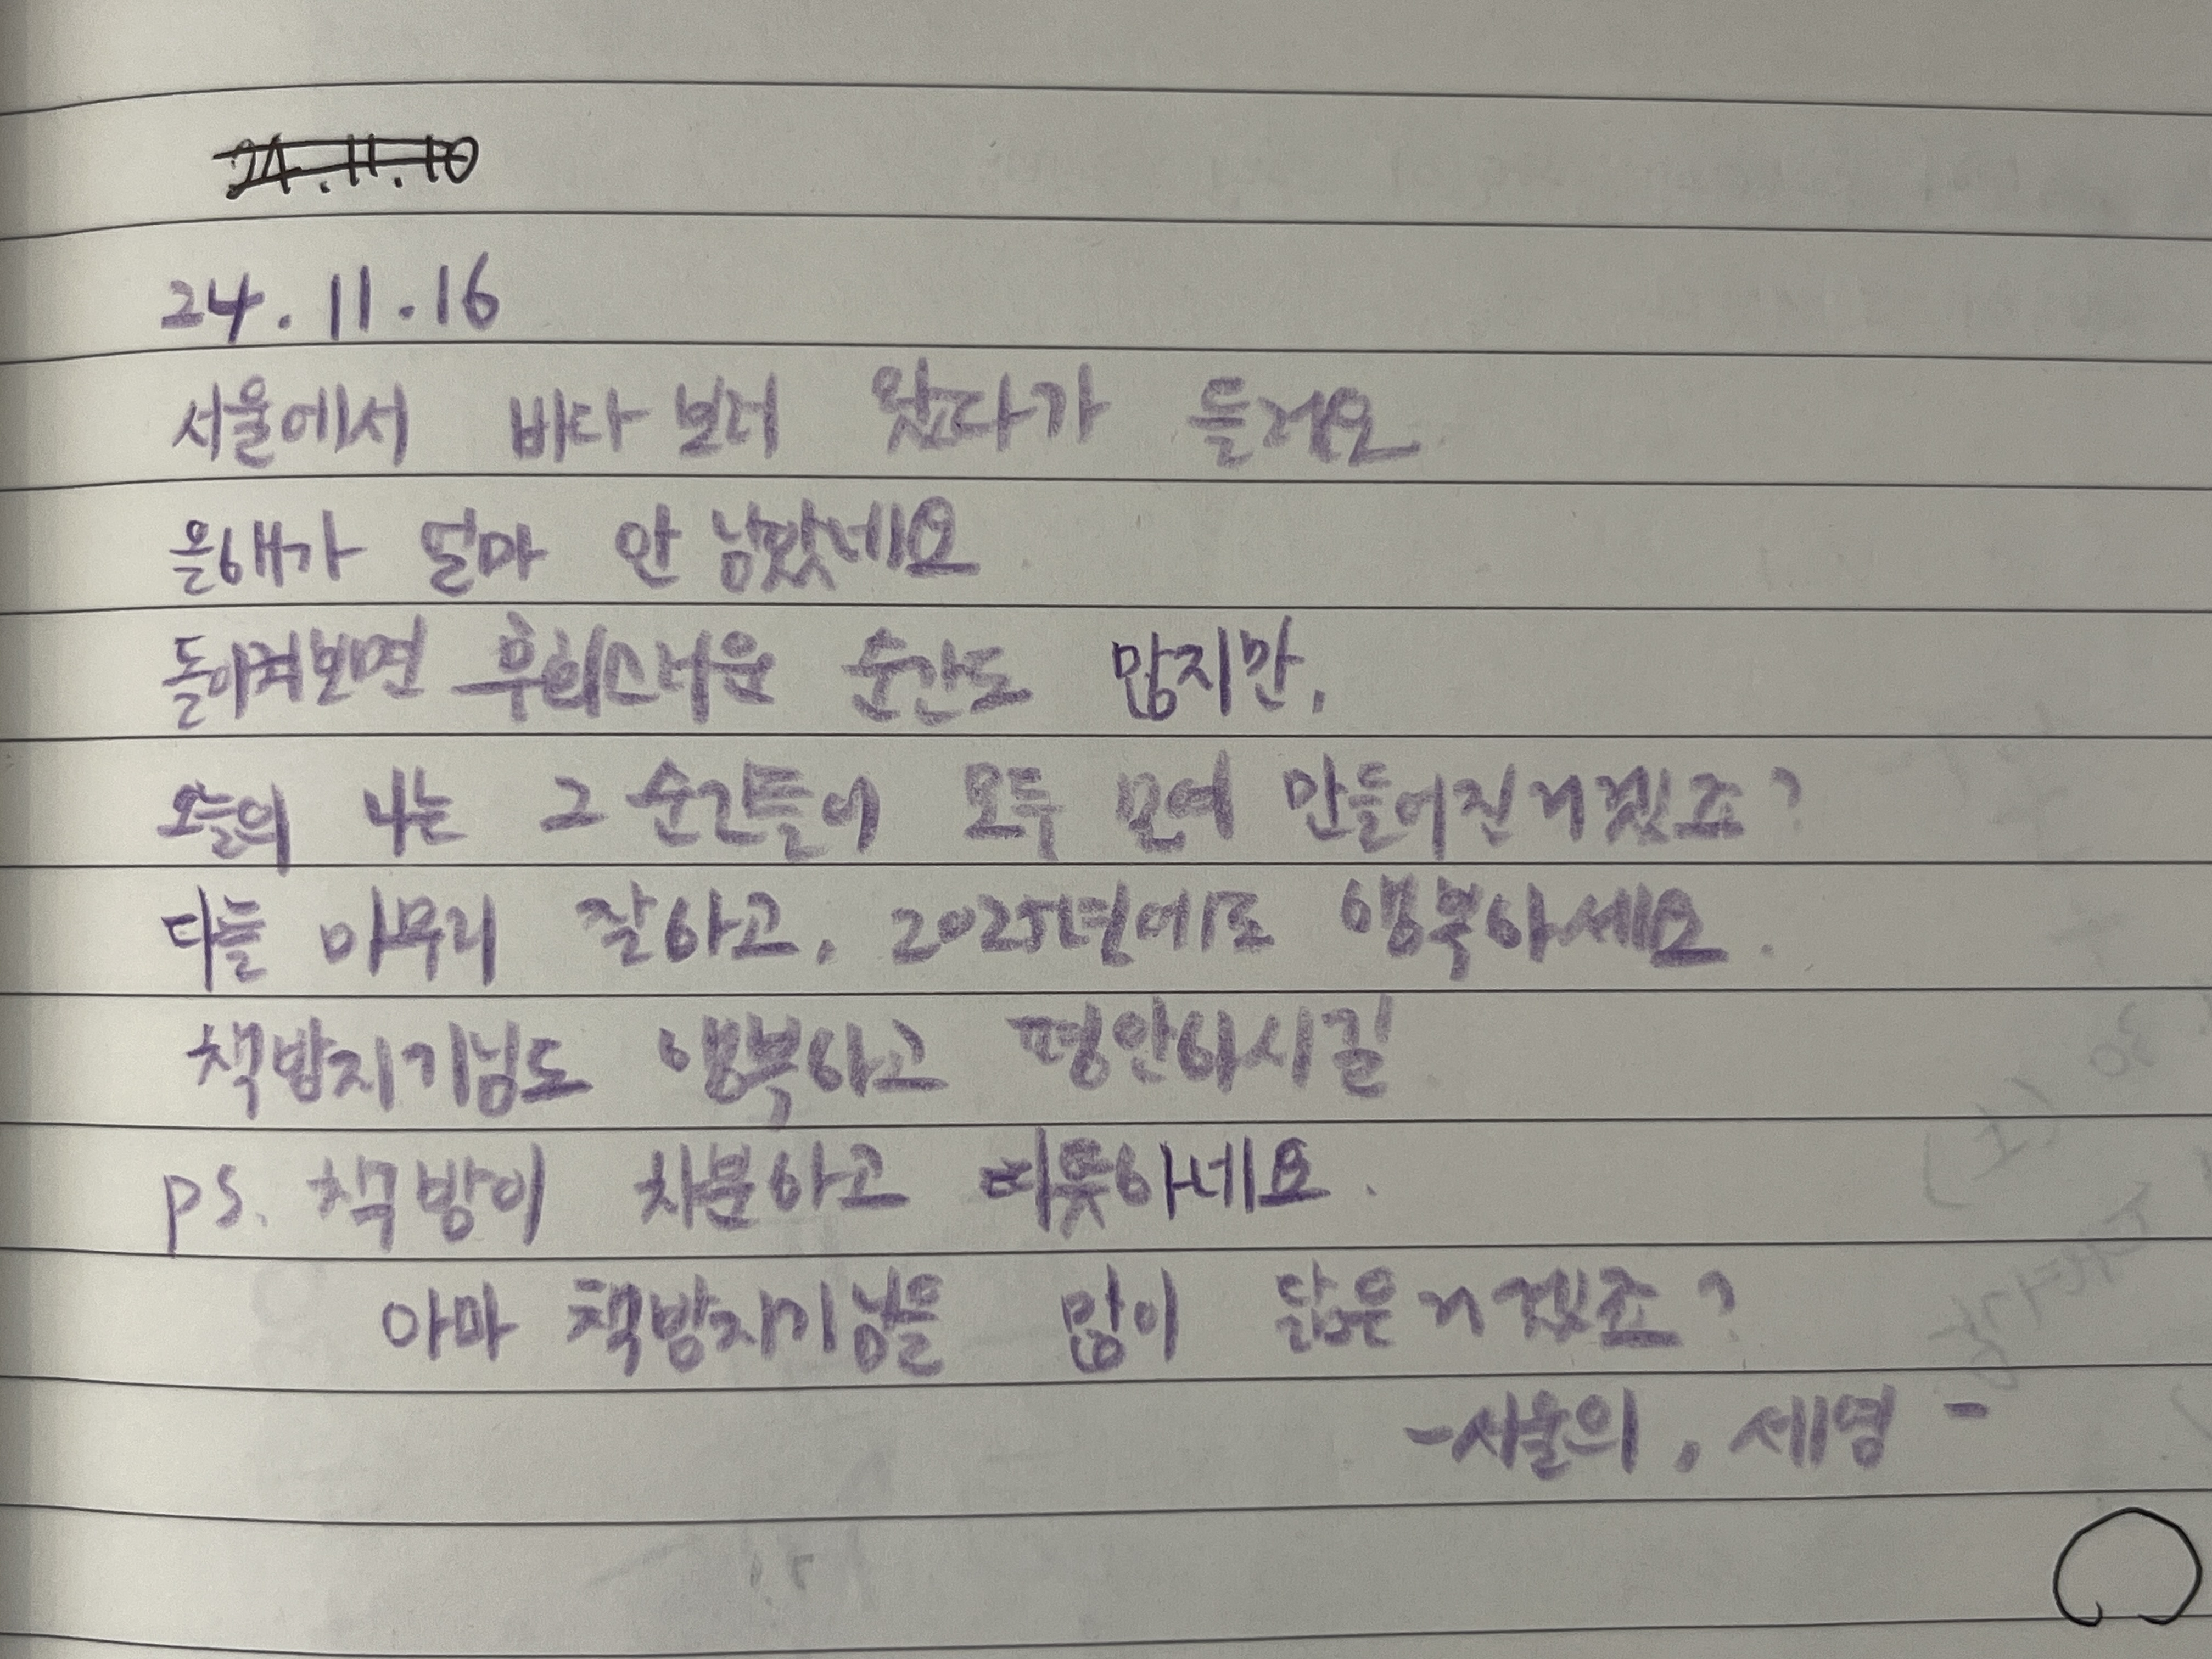 24.11.10
24.11.16
서울에서 바다 보러 왔다가 들려요
올해가 얼마 안 남았네요
돌이켜보면 후회스러운 순간도 많지만,
오늘의 나는 그 순간들이 모두 모여 만들어진거겠죠?
다들 마무리 잘하고, 2025년에도 행복하세요.
책방지기님도 행복하고 평안하시길
ps. 책방이 차분하고 따뜻하네요.
아마 책방지기님을 많이 닮은거겠죠?
-서울의, 세영-